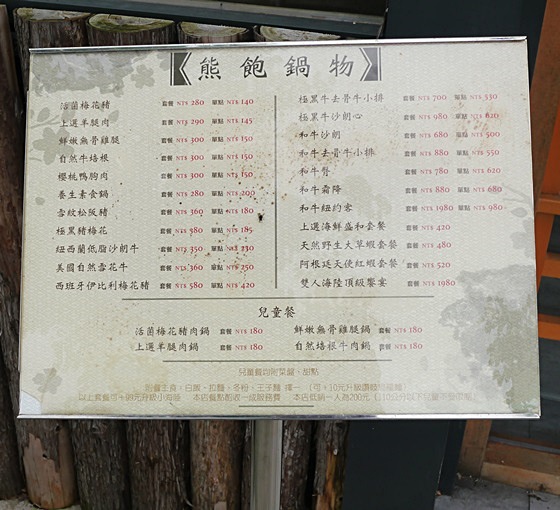 熊飽鍋物
活菌梅花豬 套餐 NT$ 280 單點 NT$ 140
上選羊腿肉 套餐 NT$ 290 單點 NT$ 145
鮮嫩無骨雞腿 套餐 NT$ 300 單點 NT$ 150
自然牛培根 套餐 NT$ 300 單點 NT$ 150
櫻桃鴨胸肉 套餐 NT$ 300 單點 NT$ 150
養生素食鍋 套餐 NT$ 280 單點 NT$ 200
雪紋松阪豬 套餐 NT$ 360 單點 NT$ 180
極黑豬梅花 套餐 NT$ 380 單點 NT$ 185
紐西蘭低脂沙朗牛 套餐 NT$ 350 單點 NT$ 230
美國自然雪花牛 套餐 NT$ 360 單點 NT$ 250
西班牙伊比利梅花豬 套餐 NT$ 580 單點 NT$ 420
極黑牛去骨牛小排 套餐 NT$ 700 單點 NT$ 530
極黑牛沙朗心 套餐 NT$ 980 單點 NT$ 820
和牛沙朗 套餐 NT$ 680 單點 NT$ 500
和牛去骨牛小排 套餐 NT$ 880 單點 NT$ 550
和牛臀 套餐 NT$ 780 單點 NT$ 620
和牛霜降 套餐 NT$ 880 單點 NT$ 680
和牛紐約客 套餐 NT$ 1980 單點 NT$ 980
上選海鮮盛和套餐 套餐 NT$ 420
天然野生大草蝦套餐 套餐 NT$ 480
阿根廷天使紅蝦套餐 套餐 NT$ 520
雙人海陸頂級饗宴 套餐 NT$ 1980
兒童餐
活菌梅花豬肉鍋 套餐 NT$ 180
上選羊腿肉鍋 套餐 NT$ 180
鮮嫩無骨雞腿鍋 套餐 NT$ 180
自然培根牛肉鍋 套餐 NT$ 180
兒童餐均附菜盤、甜點
附餐主食，白飯、拉麵、冬粉、王子麵 擇一 (可，10元升級
以上套餐可+99元升級小海陸 本店餐點酌收一成服務費 本店低銷一人為200元